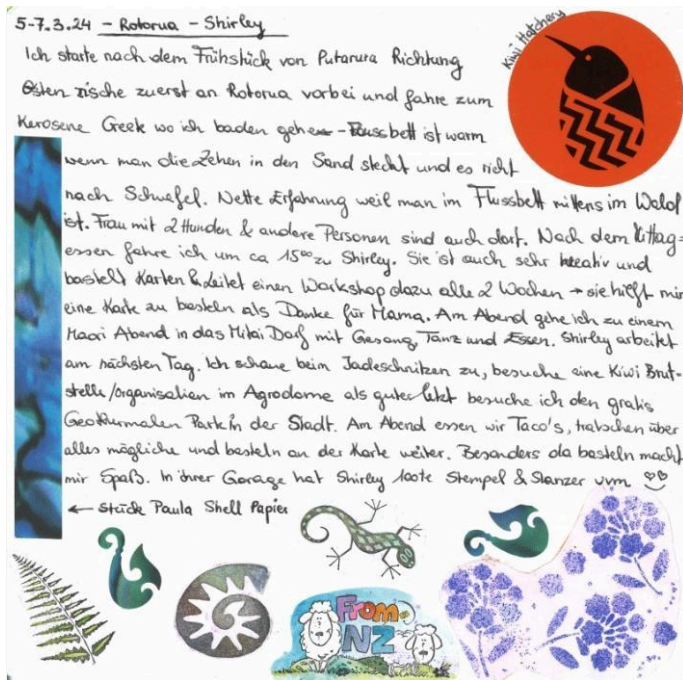 5-7.3.24 - Rotorua - Shirley
Kiwi Hatchery
Ich starte nach dem Frühstück von Putarura Richtung
Osten zische zuerst an Rotorua vorbei und fahre zum
Kerosene Creek wo ich baden gehe - Flussbett ist warm
wenn man die Zehen in den Sand steckt und es richt
nach Schwefel. Nette Erfahrung weil man im Flussbett mittens im Wald
ist. Frau mit 2 Hunden & andere Personen sind auch dort. Nach dem Mittag=
essen fahre ich um ca 15⁰⁰ zu Shirley. Sie ist auch sehr kreativ und
bastelt Karten & leitet einen Workshop dazu alle 2 Wochen → sie hilft mir
eine Karte zu basteln als Danke für Mama. Am Abend gehe ich zu einem
Maori Abend in das Mitai Dorf mit Gesang, Tanz und Essen. Shirley arbeitet
am nächsten Tag. Ich schaue beim Jadeschnitzen zu, besuche eine Kiwi Brut-
stelle/organisation im Agrodome als guter letzt besuche ich den gratis
Geothermalen Park in der Stadt. Am Abend essen wir Taco's, tratschen über
alles mögliche und basteln an der Karte weiter. Besonders da basteln macht
mir Spaß. In ihrer Garage hat Shirley 100te Stempel & Stanzer uvm
← stück Paula Shell Papier
From
NZ